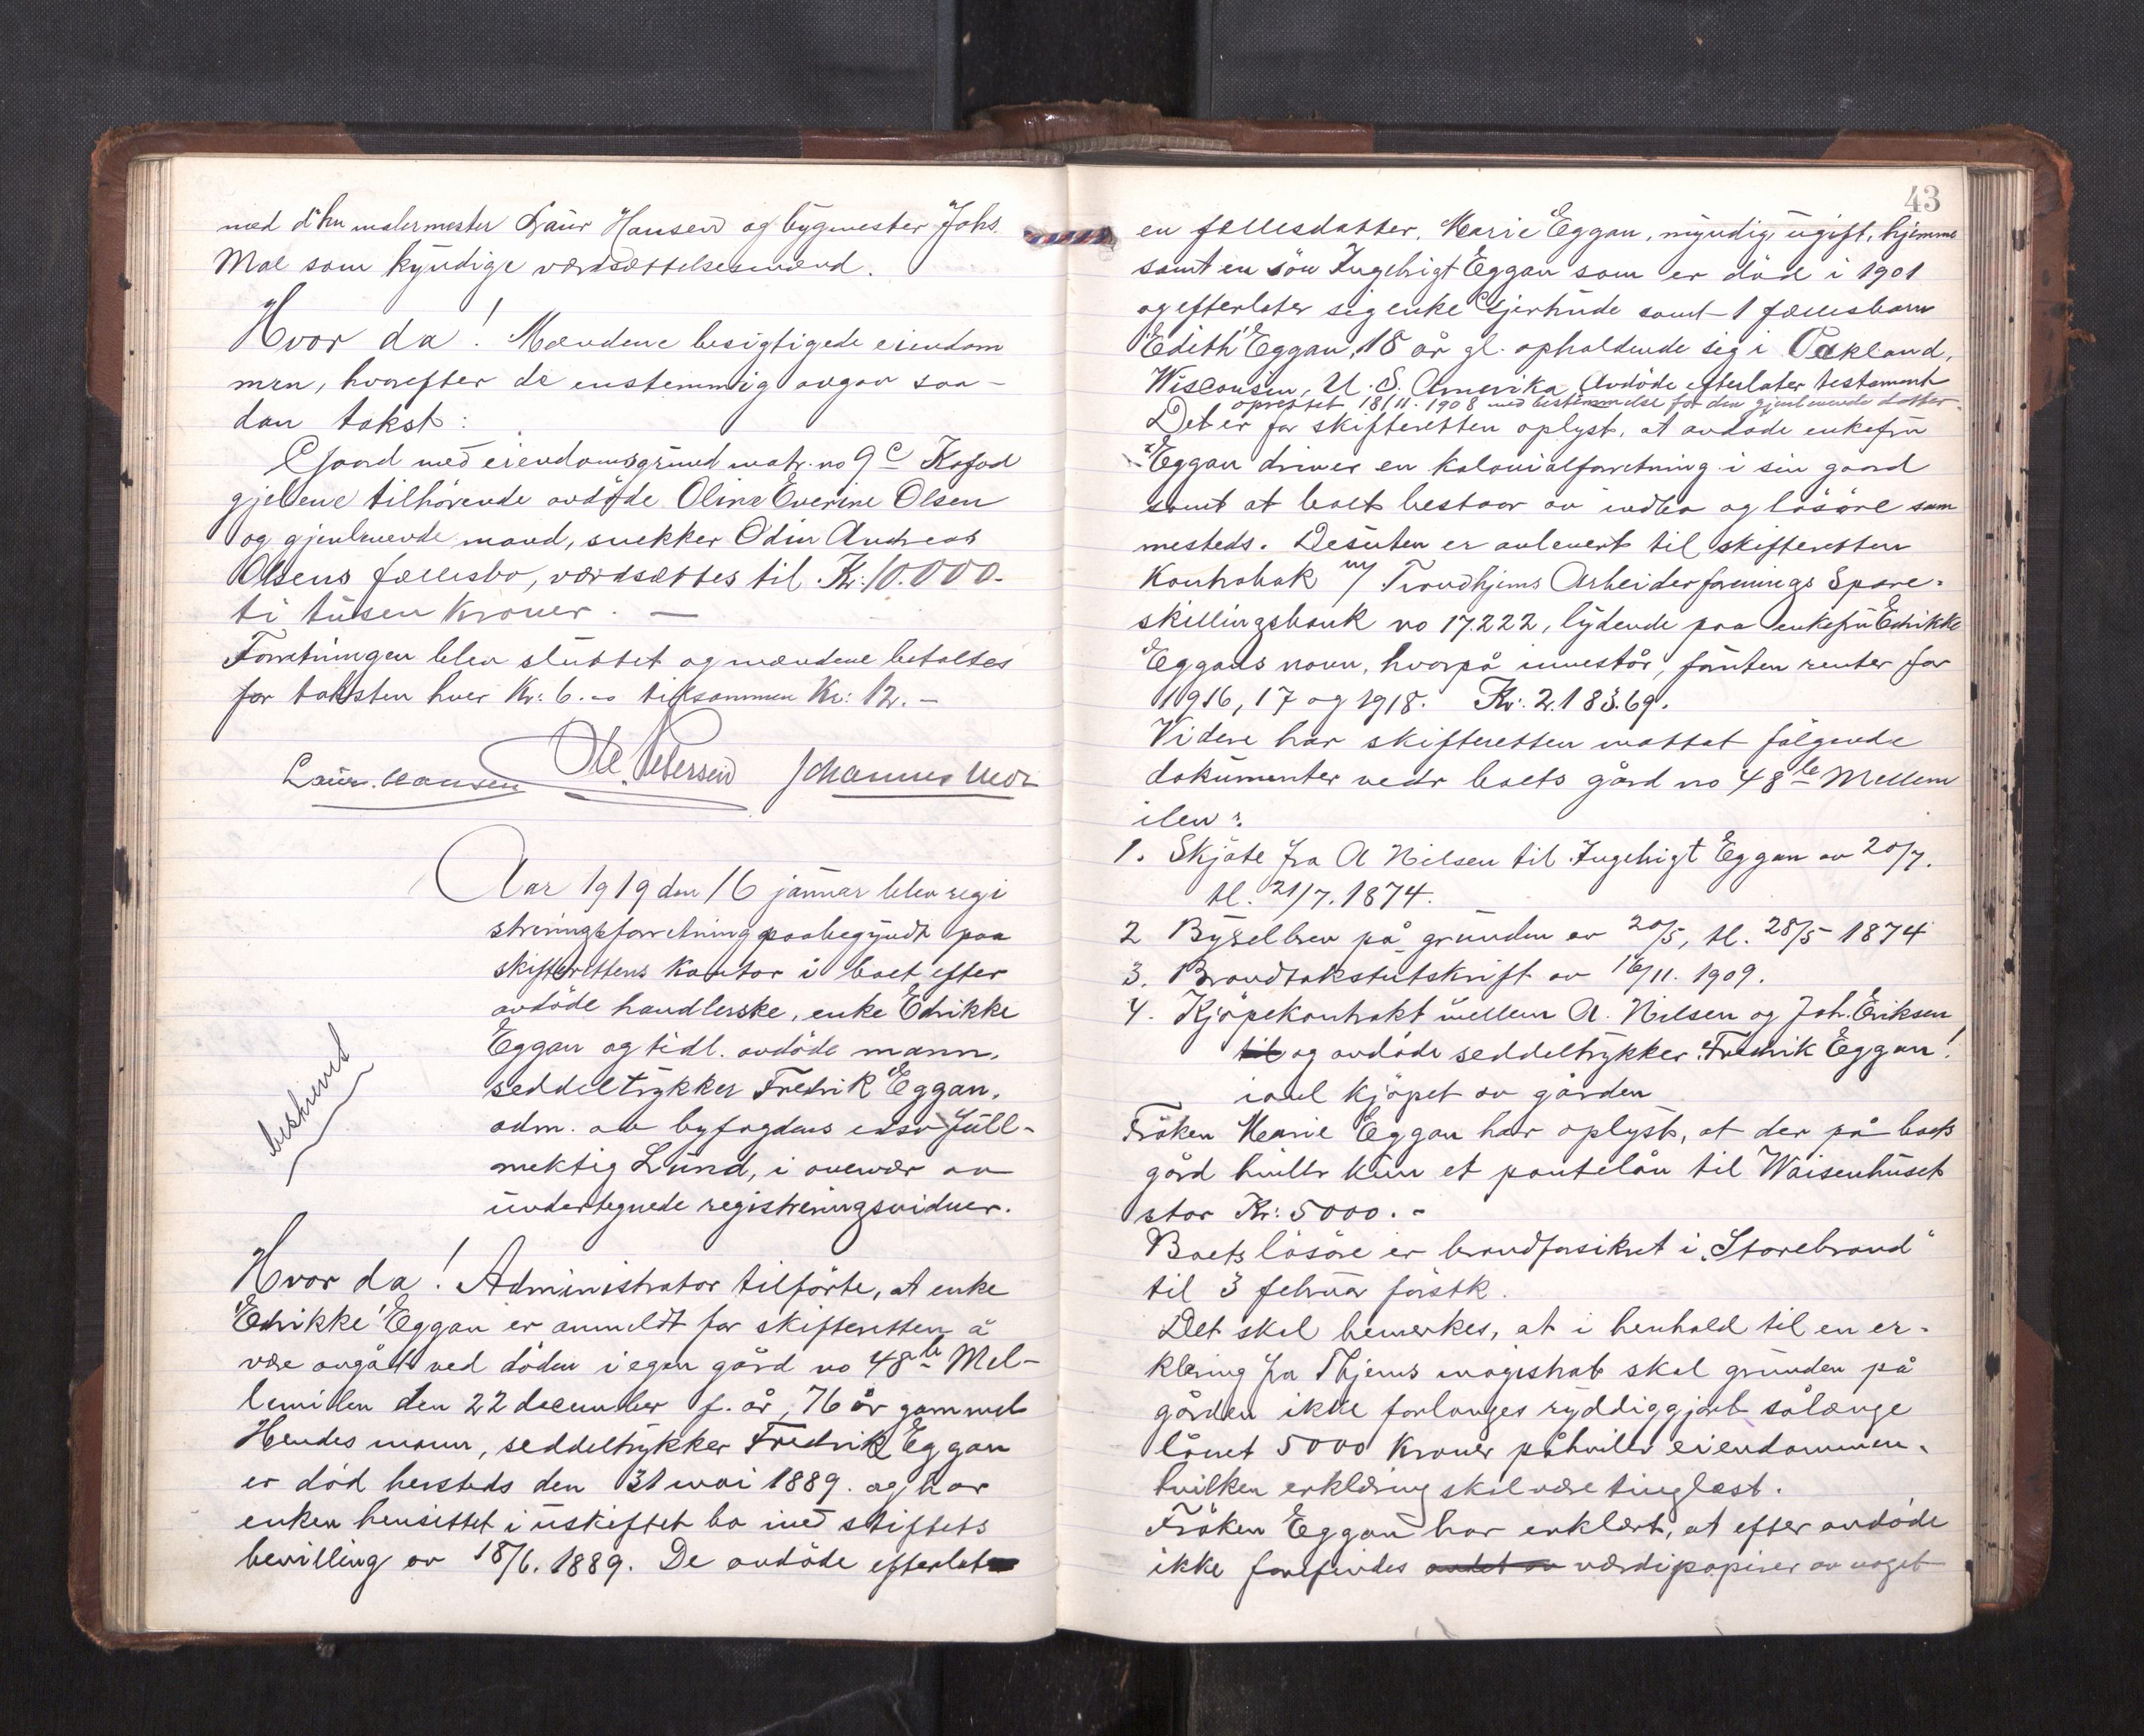 med d'hrr malermester Laur Hansen og bygmester Johs.
Moe som kyndige værdsættelsesmænd.
Hvor da! Mændene besigtigede eiendom
men, hvorefter de enstemmig avgav saa-
dan takst:
Gaard med eiendomsgrund matr. no 9c Kofod
gjelene tilhørende avdøde Oline Everine Olsen
og gjenlevende mand, snekker Odin Andreas
Olsens fællesbo, værdsættes til Kr: 10.000.-
ti tusen kroner. —
Forretningen blev sluttet og mændene betaltes
for taksten hver Kr: 6.- tilsammen Kr: 12.-
Laur. Hansen Ole Petersen Johannes Moe
Aar 1919 den 16 januar blev regi
streringsforretning paabegyndt paa
skifterettens kontor i boet efter
avdöde handlerske, enke Edrikke
Eggan og tidl. avdöde mann,
seddeltrykker Fredrik Eggan,
adm. av byfogdens edsv. full-
mektig Lund, i overvær av
undertegnede registreringsvidner.
beskrevet
Hvor da! Administrator tilförte, at enke
Edrikke Eggan er anmeldt for skifteretten å
være avgått ved döden i egen gård no 48b Mel-
lemilen den 22 december f. år, 76 år gammel
Hendes mann, seddeltrykker Fredrik Eggan
er död hersteds den 31 mai 1889. og har
enken hensittet i uskiftet bo med stiftets
bevilling av 18/6. 1889. De avdöde efterlot
43
en fællesdatter, Marie Eggan, myndig, ugift, hjemme
samt en sön Ingebrigt Eggan som er död i 1901
og efterlater sig enke Gjertrude samt 1 fællesbarn
Edith Eggan, 18 år gl. opholdende sig i Oakland,
Wisconsin, U. S. Amerika. Avdöde efterlater testament
oprettet 18/11. 1908 med bestemmelse for den gjenlevende datter.
Det er for skifteretten oplyst, at avdøde enkefru
Eggan driver en kolonialforretning i sin gaard
samt at boet bestaar av indbo og lösöre sam
mesteds. Desuten er avlevert til skifteretten
Kontrabok m/ Trondhjems Arbeiderforenings Spare-
skillingsbank no 17.222, lydende paa enkefru Edrikke
Eggans navn, hvorpå innestår, foruten renter for
1916, 17 og 1918. Kr. 2.183.69.
Videre har skifteretten mottat fölgende
dokumenter vedr boets gård no 48b Mellem
ilen:
1. Skjöte fra A Nilsen til Ingebrigt Eggan av 20/7.
tl. 21/7. 1874.
2 Bygselbrev på grunden av 20/5, tl. 28/5 1874
3. Brandtakstutskrift av 16/11. 1909.
4. Kjöpekontrakt mellem A. Nilsen og Joh. Eriksen
til og avdöde seddeltrykker Fredrik Eggan!
iavl kjöpet av gården
Fröken Marie Eggan har oplyst, at der på boets
gård hviler kun et pantelån til Waisenhuset
stor Kr: 5000.-
Boets lösöre er brandforsikret i "Storebrand"
til 3 februar förstk.
Det skal bemerkes, at i henhold til en er-
klæring fra Thjems magistrat skal grunden på
gården ikke forlanges ryddiggjort sålænge
lånet 5000 kroner påhviler eiendommen,
hvilken erklæring skal være tinglæst.
Fröken Eggan har erklært, at efter avdöde
ikke forefindes andet av værdipapirer av noget